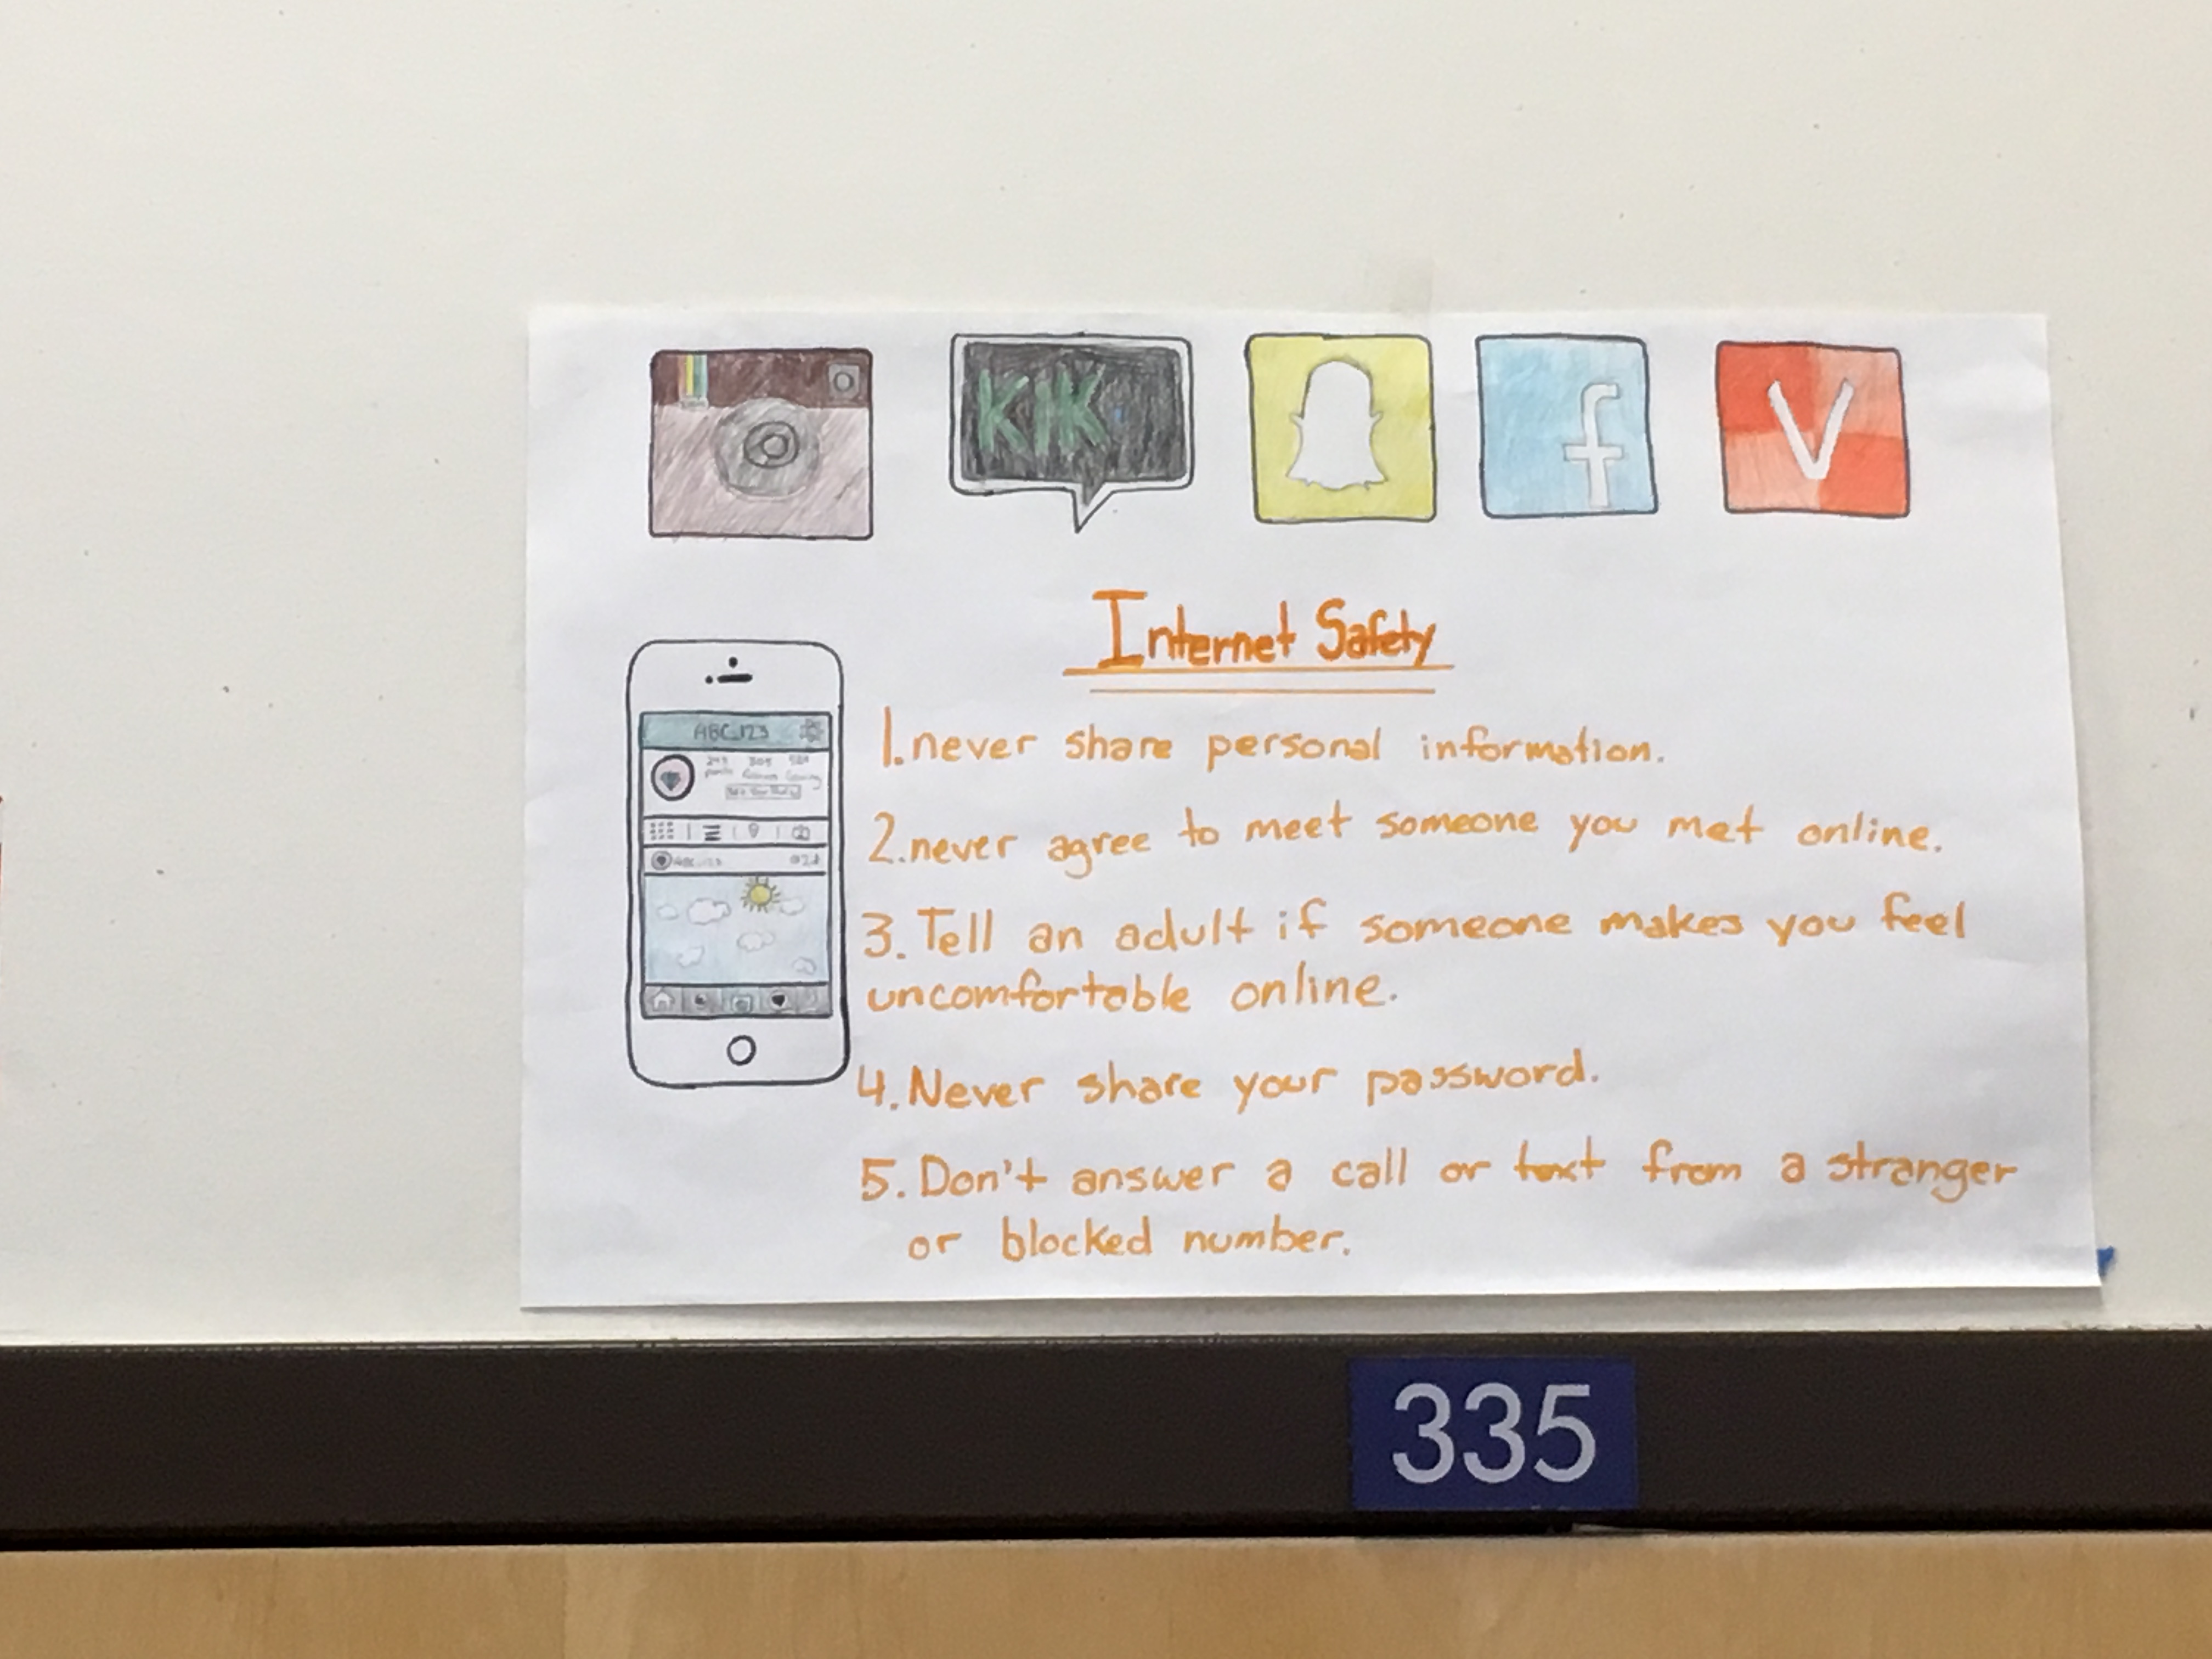 KIK
f
V
Internet Safety
1. never share personal information.
ABC_123
2. never agree to meet someone you met online.
3. Tell an adult if someone makes you feel
uncomfortable online.
4. Never share your password.
5. Don't answer a call or text from a stranger
or blocked number.
335